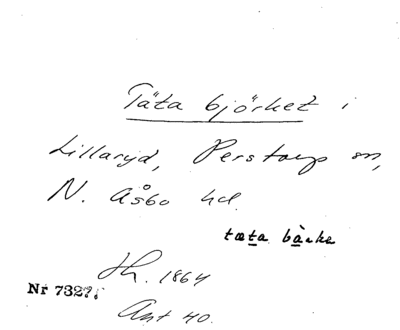 Täta björket i
Lillaryd, Perstorp sn,
N. Åsbo hd.
tæta bàrke
Hh. 1864
Nr 7327.
Ant 40.